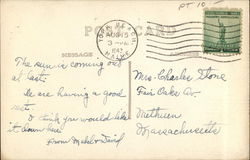 PT 10-
POST CARD
YORK BEACH
AUG 15
3 PM
1942
MAINE
MESSAGE
The sun is coming out
at last.
We are having a good
rest.
I think you would like
it down here.
From Mabel &
Mrs. Charles Stone
Fair Oaks Av.
Methuen
Massachusetts